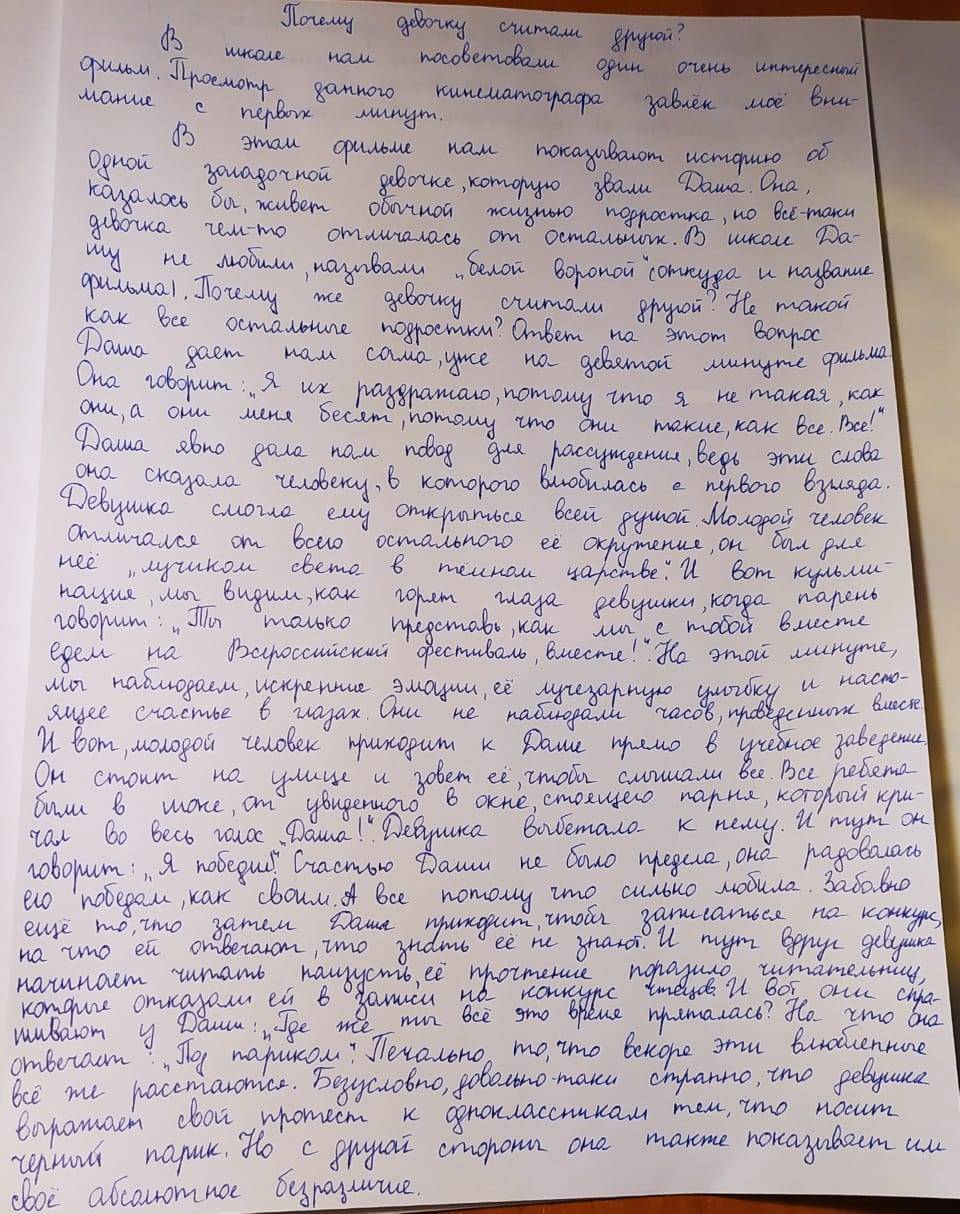 Почему девочку считали другой?
В школе нам посоветовали один очень интересный
фильм. Просмотр данного кинематографа завлёк моё вни-
мание с первых минут.
В этом фильме нам показывают историю об
одной загадочной девочке, которую звали Даша. Она,
казалось бы, живет обычной жизнью подростка, но всё-таки
девочка чем-то отличалась от остальных. В школе Да-
шу не любили, называли „белой вороной" (откуда и название
фильма). Почему же девочку считали другой? Не такой
как все остальные подростки? Ответ на этот вопрос
Даша дает нам сама, уже на девятой минуте фильма.
Она говорит: „Я их раздражаю, потому что я не такая, как
они, а они меня бесят, потому что они такие, как все. Все!"
Даша явно дала нам повод для рассуждения, ведь эти слова
она сказала человеку, в которого влюбилась с первого взгляда.
Девушка смогла ему открыться всей душой. Молодой человек
отличался от всего остального её окружения, он был для
неё „лучиком света в тёмном царстве". И вот кульми-
нация, мы видим, как горят глаза девушки, когда парень
говорит: „Ты только представь, как мы с тобой вместе
едем на Всероссийский фестиваль, вместе!". На этой минуте,
мы наблюдаем, искренние эмоции, её лучезарную улыбку и насто-
ящее счастье в глазах. Они не наблюдали часов, проведенных вместе.
И вот, молодой человек приходит к Даше прямо в учебное заведение.
Он стоит на улице и зовет её, чтобы слышали все. Все ребята
были в шоке, от увиденного в окне, стоящего парня, который кри-
чал во весь голос „Даша!". Девушка выбежала к нему. И тут он
говорит: „Я победил!" Счастью Даши не было предела, она радовалась
его победам, как своим. А все потому что сильно любила. Забавно
ещё то, что затем Даша приходит, чтобы записаться на конкурс,
на что ей отвечают, что знать её не знают. И тут вдруг девушка
начинает читать наизусть, её прочтение поразило читательниц,
которые отказали ей в записи на конкурс чтецов. И вот они спра-
шивают у Даши: „Где же ты всё это время пряталась? На что она
отвечает: „Под париком". Печально то, что вскоре эти влюбленные
всё же расстаются. Безусловно, довольно-таки странно, что девушка
выражает свой протест к одноклассникам тем, что носит
черный парик. Но с другой стороны она также показывает им
своё абсолютное безразличие.